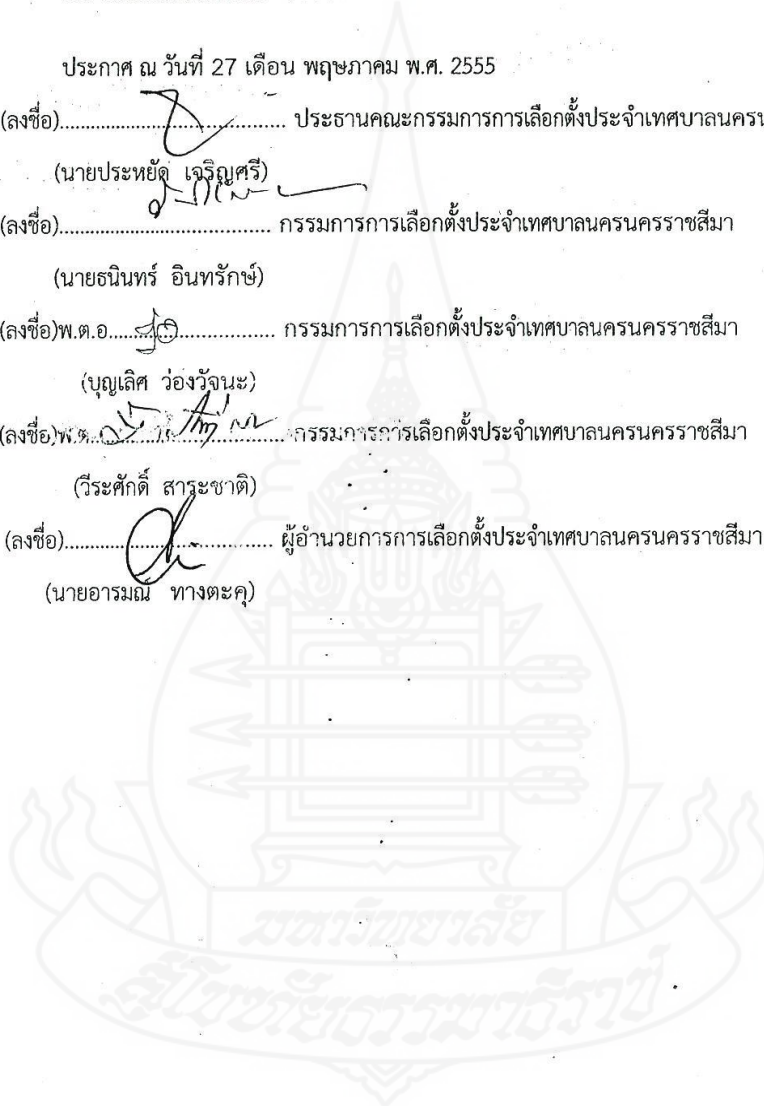 ประกาศ ณ วันที่ 27 เดือน พฤษภาคม พ.ศ. 2555
(ลงชื่อ)........................................ ประธานคณะกรรมการการเลือกตั้งประจำเทศบาลนคร
(นายประหยัด เจริญศรี)
(ลงชื่อ)........................................ กรรมการการเลือกตั้งประจำเทศบาลนครนครราชสีมา
(นายธนินทร์ อินทรักษ์)
(ลงชื่อ)พ.ต.อ............................... กรรมการการเลือกตั้งประจำเทศบาลนครนครราชสีมา
(บุญเลิศ ว่องวัจนะ)
(ลงชื่อ)พ.ต............................... กรรมการการเลือกตั้งประจำเทศบาลนครนครราชสีมา
(วีระศักดิ์ สาระชาติ)
(ลงชื่อ)........................................ ผู้อำนวยการการเลือกตั้งประจำเทศบาลนครนครราชสีมา
(นายอารมณ์ ทางตะคุ)
มหาวิทยาลัย
สุโขทัยธรรมาธิราช